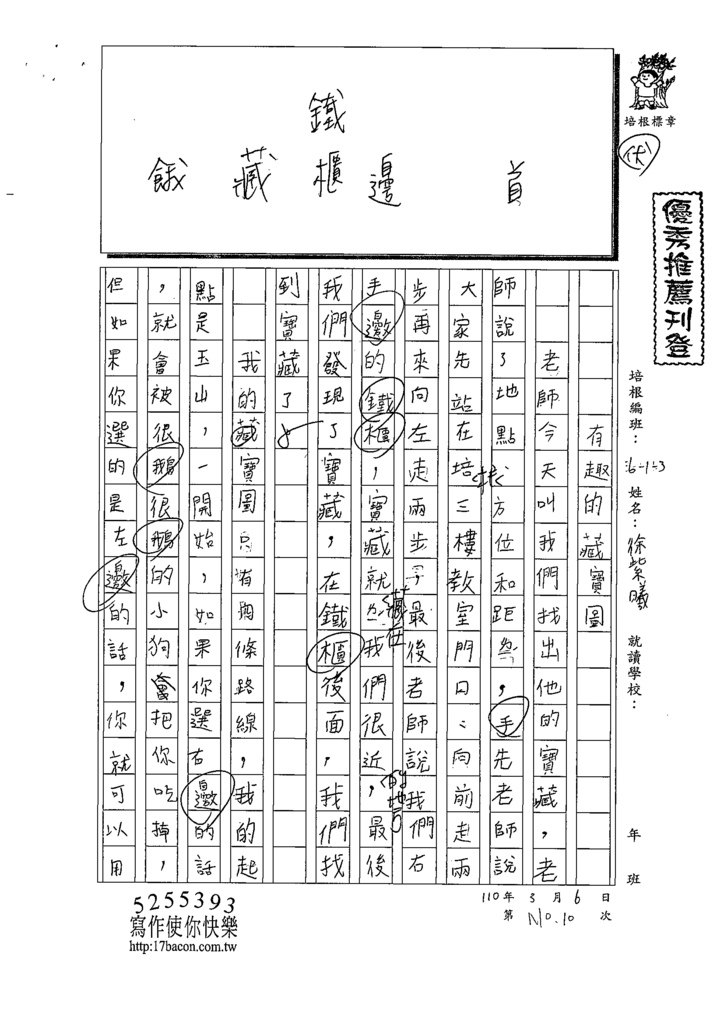 鐵
餓 藏 櫃 邊 首
培根標章
優秀推薦刊登
培根編班：
姓名：徐紫曦
就讀學校：
年 班
有趣的藏寶圖
老師今天叫我們找出他的寶藏，老
師說了地點找方位和距離，手先老師說
大家先站在培三樓教室門口，向前走兩
步再來向左走兩步最後老師說我們右
手邊的鐵櫃，寶藏就藏在我們很近的地方，最後
我們發現了寶藏，在鐵櫃後面，我們找
到寶藏了
我的藏寶圖有兩條路線，我的起
點是玉山，一開始，如果你選右邊的話
，就會被很鵝很鵝的小狗會把你吃掉，
但如果你選的是左邊的話，你就可以用
110年 3月 6日
第 NO.10 次
5255393
寫作使你快樂
http:17bacon.com.tw